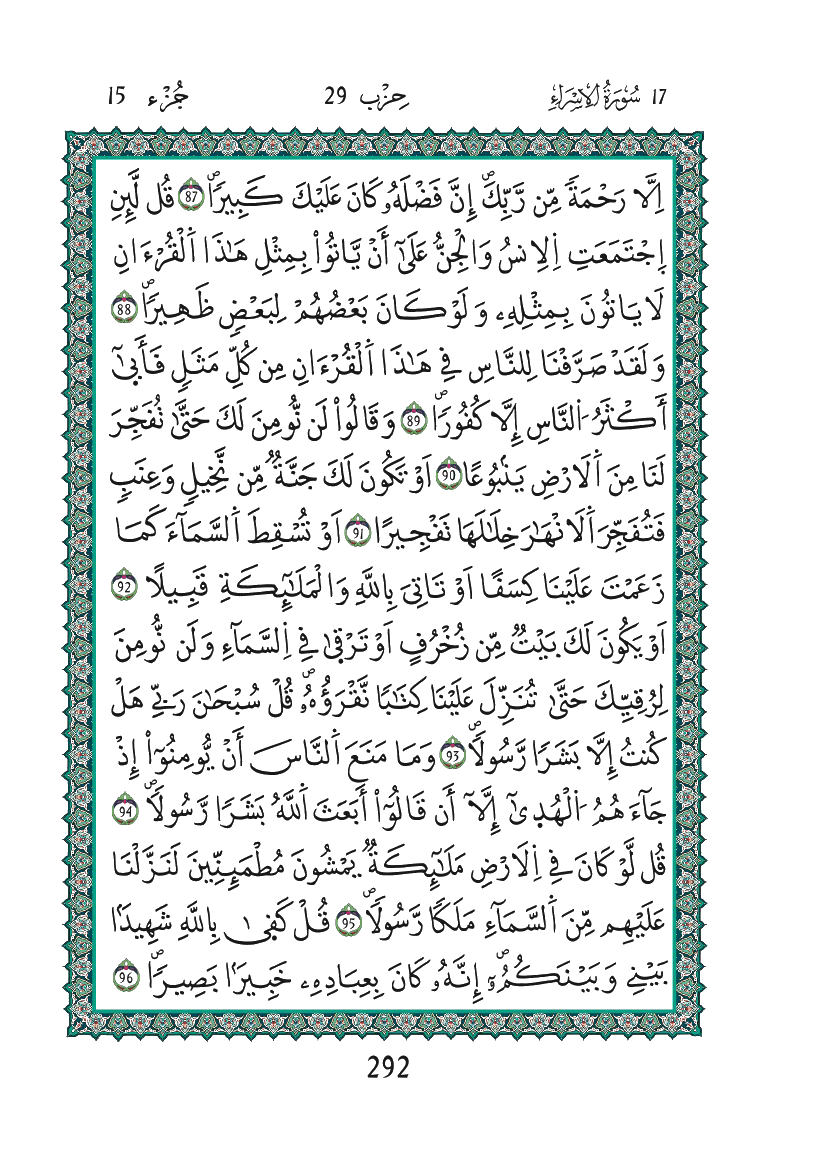 17 سُورَةُ الِاسْرَاءِ حِزْب 29 جُزْء 15
اِلَّا رَحْمَةً مِّن رَّبِّكَۖ إِنَّ فَضْلَهُۥ كَانَ عَلَيْكَ كَبِيرًاۖ 87 قُل لَّئِنِ
اِجْتَمَعَتِ اِلِانسُ وَالْجِنُّ عَلَىٰٓ أَنْ يَّاتُواْ بِمِثْلِ هَٰذَا اَلْقُرْءَانِ
لَا يَاتُونَ بِمِثْلِهِۦ وَلَوْ كَانَ بَعْضُهُمْ لِبَعْضٍ ظَهِيرًاۖ 88
وَلَقَدْ صَرَّفْنَا لِلنَّاسِ فِے هَٰذَا اَلْقُرْءَانِ مِن كُلِّ مَثَلٍ فَأَبَىٰٓ
أَكْثَرُ اُلنَّاسِ إِلَّا كُفُورًاۖ 89 وَقَالُواْ لَن نُّومِنَ لَكَ حَتَّىٰ تُفَجِّرَ
لَنَا مِنَ اَلَارْضِ يَنۢبُوعًا 90 اَوْ تَكُونَ لَكَ جَنَّةٌ مِّن نَّخِيلٍ وَعِنَبٍ
فَتُفَجِّرَ اَلَانْهَٰرَ خِلَٰلَهَا تَفْجِيرًا 91 اَوْ تُسْقِطَ اَلسَّمَآءَ كَمَا
زَعَمْتَ عَلَيْنَا كِسَفًا اَوْ تَاتِيَ بِاللَّهِ وَالْمَلَٰٓئِكَةِ قَبِيلًا 92
اَوْ يَكُونَ لَكَ بَيْتٌ مِّن زُخْرُفٍ اَوْ تَرْقَىٰ فِے اِلسَّمَآءِ وَلَن نُّومِنَ
لِرُقِيِّكَ حَتَّىٰ تُنَزِّلَ عَلَيْنَا كِتَٰبًا نَّقْرَؤُهُۥۖ قُلْ سُبْحَٰنَ رَبِّے هَلْ
كُنتُ إِلَّا بَشَرًا رَّسُولًاۖ 93 وَمَا مَنَعَ اَلنَّاسَ أَنْ يُّومِنُوٓاْ إِذْ
جَآءَهُمُ اُلْهُدَىٰٓ إِلَّآ أَن قَالُوٓاْ أَبَعَثَ اَللَّهُ بَشَرًا رَّسُولًاۖ 94
قُل لَّوْ كَانَ فِے اِلَارْضِ مَلَٰٓئِكَةٌ يَمْشُونَ مُطْمَئِنِّينَ لَنَزَّلْنَا
عَلَيْهِم مِّنَ اَلسَّمَآءِ مَلَكًا رَّسُولًاۖ 95 قُلْ كَفَىٰ بِاللَّهِ شَهِيدَۢا
بَيْنِے وَبَيْنَكُمُۥٓۖ إِنَّهُۥ كَانَ بِعِبَادِهِۦ خَبِيرَۢا بَصِيرًاۖ 96
292